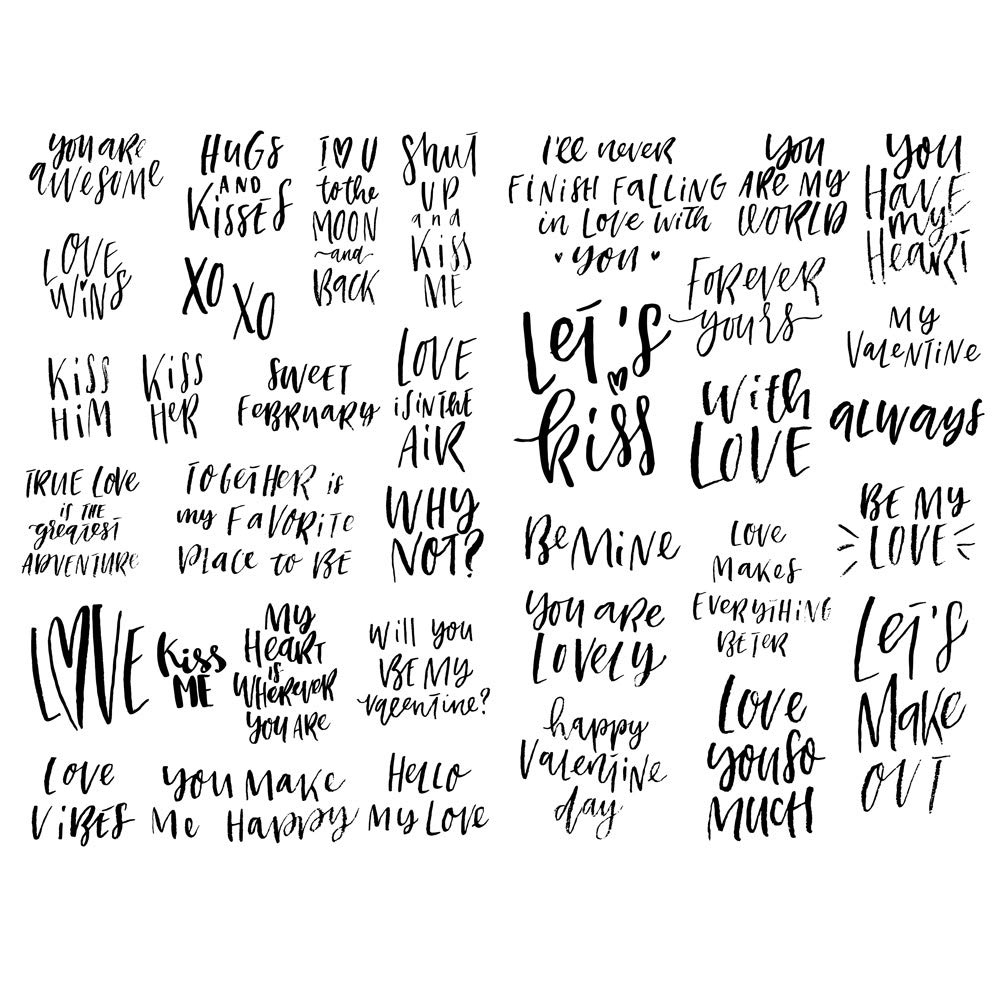 you are
awesome
HUGS
AND
KISSES
I ♥ U
to the
MOON
~and~
BACK
Shut
UP
and
KISS
ME
LOVE
WiNS
XO
XO
KISS
HiM
KISS
HER
SWEET
FEBRUARY
LOVE
iS iN THE
AiR
TRUE LOVE
is THE
greatest
ADVENTURE
TOGETHER is
my FAVORITE
Place to BE
WHY
NOT?
LOVE
Kiss
ME
MY
HEART
is
WHEREVER
YOU ARE
Will you
BE MY
valentine?
Love
ViBES
YOU MAKE
Me HAPPY
HELLO
My LOVE
I'll never
FINISH FALLING
in Love with
♥ you ♥
You
ARE MY
WORLD
YOU
HAVE
my
HEART
FOREVER
yours
Let's
kiss
MY
VALENTINE
With
LOVE
always
Be MiNe
LOVE
MAKES
EVERYTHING
BETER
BE MY
LOVE
YOU ARE
LOVELY
Let's
Make
OUT
happy
Valentine
day
Love
you So
MUCH